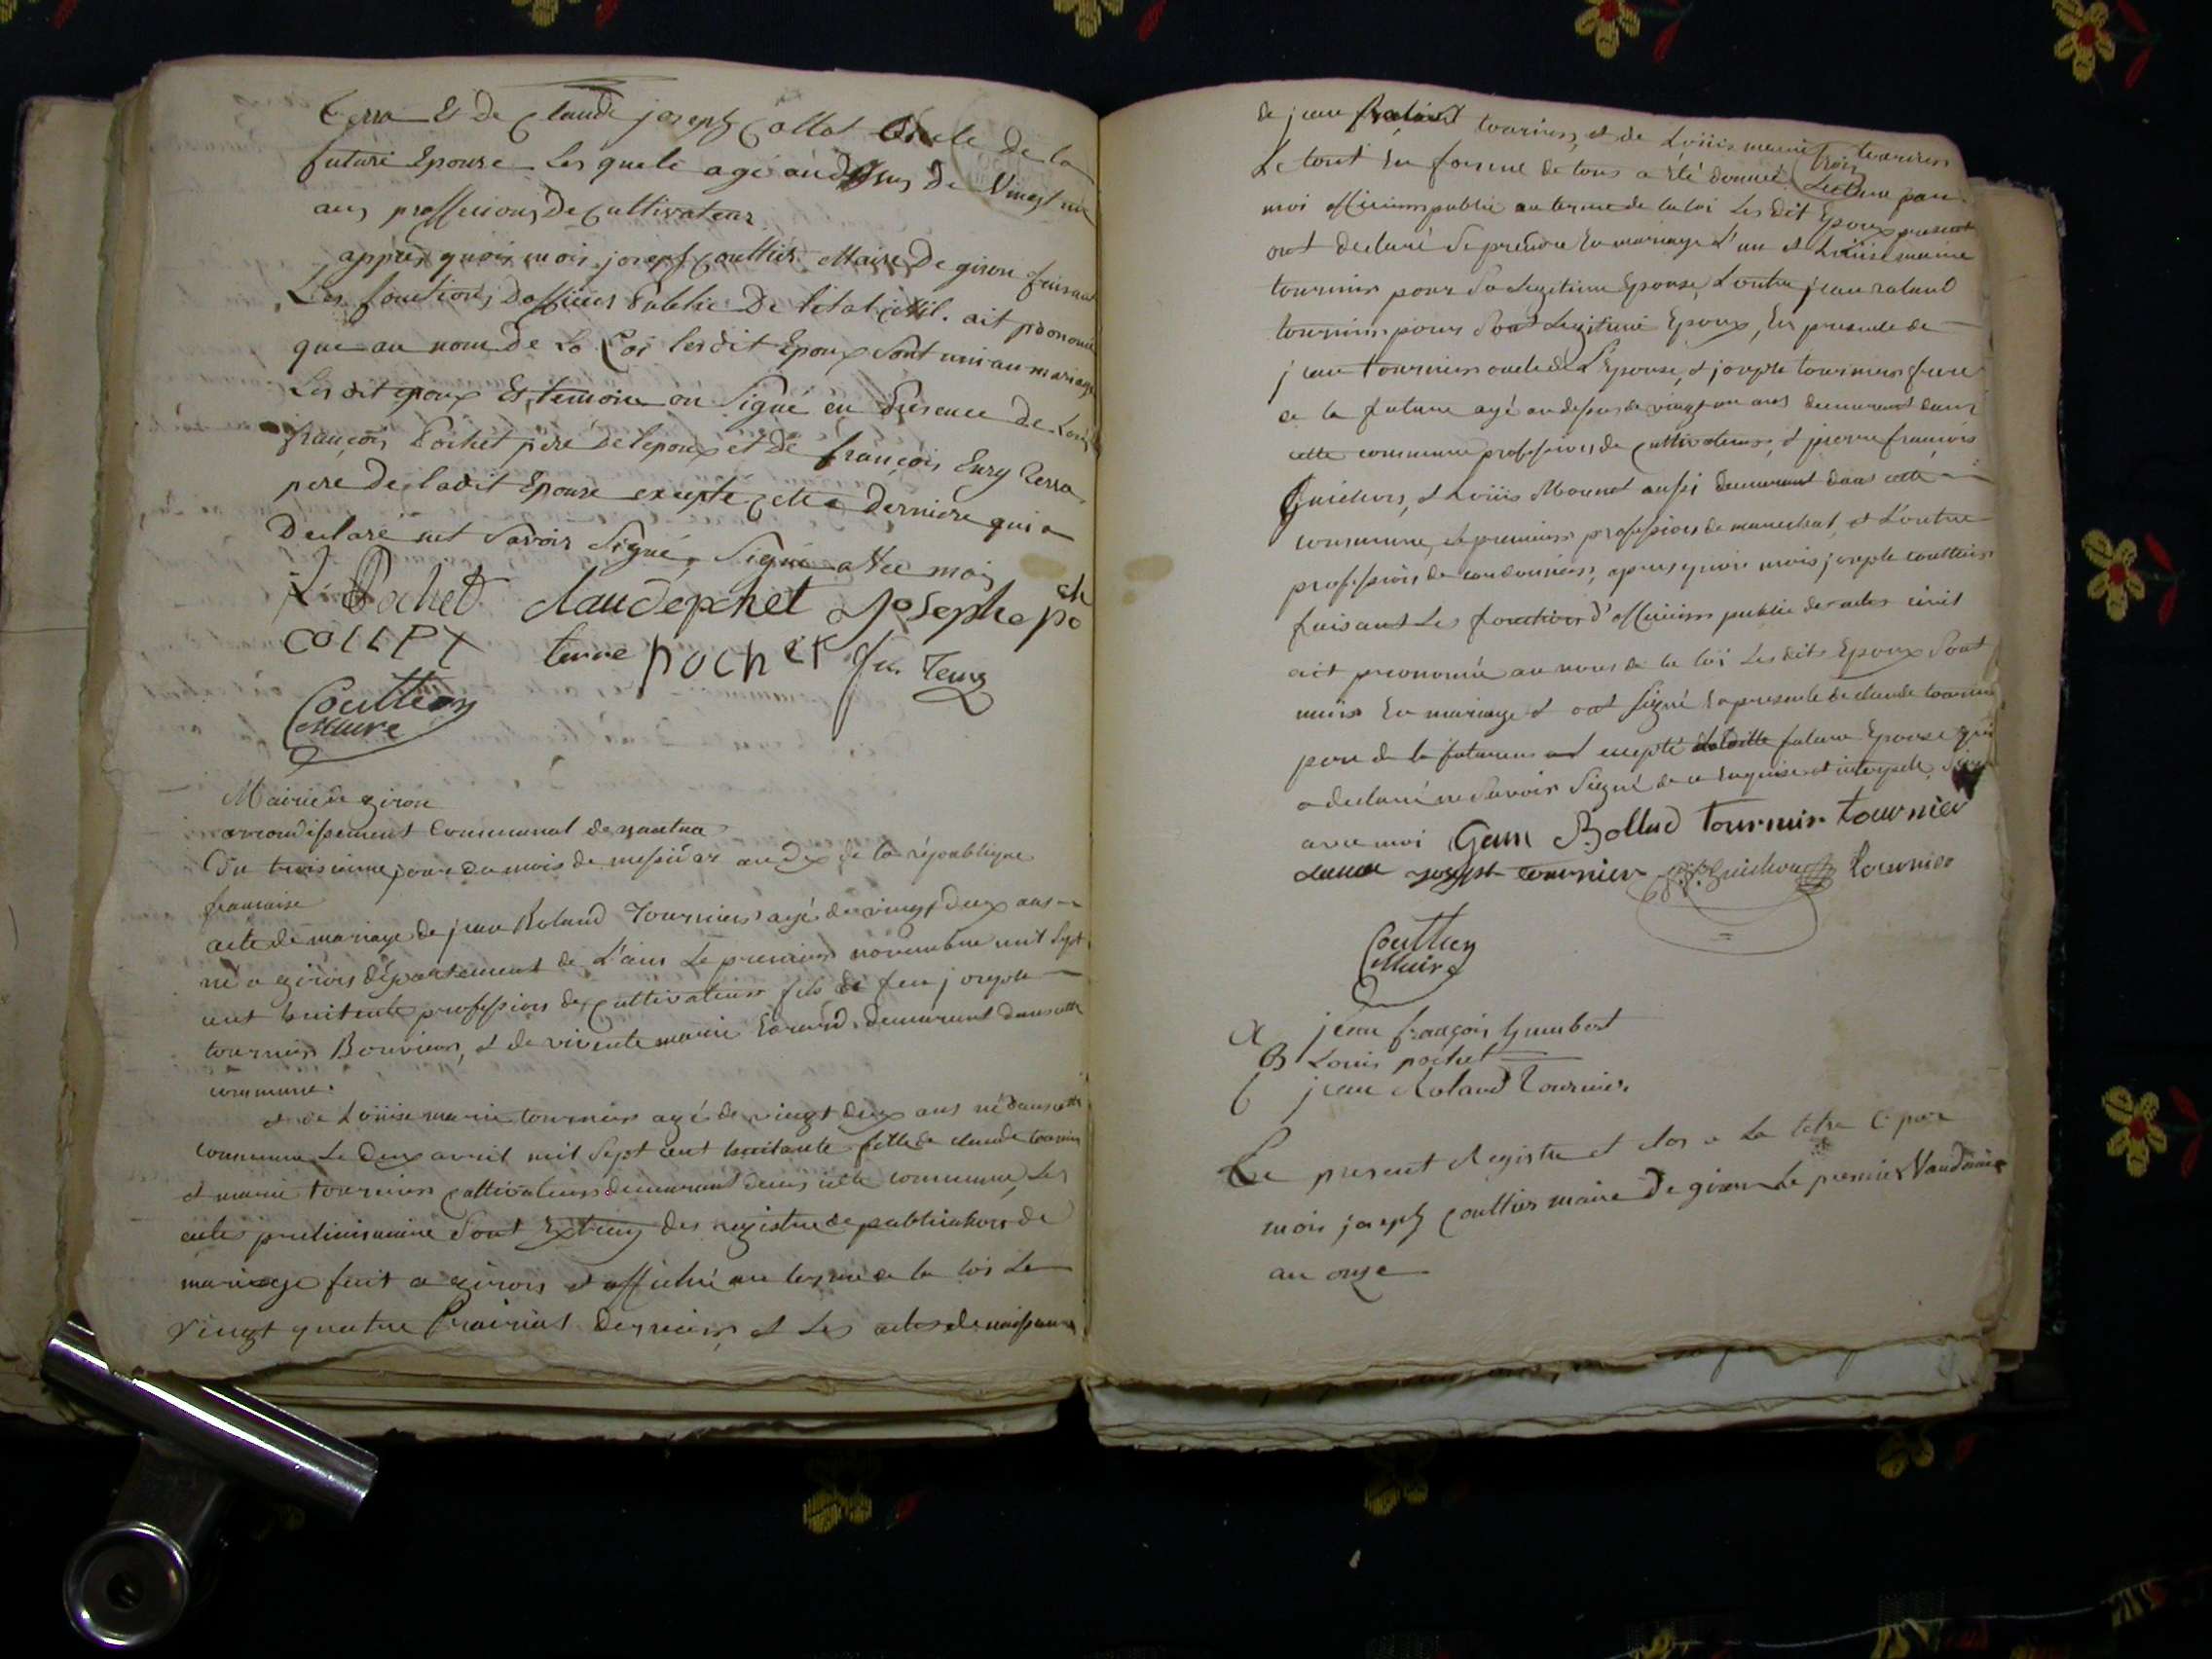 terra Et De Claude joseph Collet oncle De la
future Epouse Les quels agé audessus De Vingt un
ans professions De Cultivateur
apprés quois mois joseph Coultier Maire De giron faisant
Les fonctions D'officier Public De l'état civil. ait prononcé
que au nom De La Loi lesdit Epoux sont uni au mariage
Les dit epoux Et temoins on Signé en Présence De Louis
françois Pochet pere De l'epoux et De françois Enry Terra
pere De laDit Epouse excepté cette Derniere qui a
Déclaré net Savoir Signé, Signé avec mois
L. Pochet claudepochet Josephe po ch
COLLET terra pochet
Coultier
Maire
Mairie de giron
arrondissement Communal de nantua
Du troisieme jour du mois de messidor an Dix de la république
francaise
acte de mariage de jean Roland Tournier agé de vingt deux ans
né a giron département de L'ain Le premier novembre mil Sept
cent huitente profession de Cultivateur fils de feu josephe
tournier Bouvier, et de vivente marie Evrard, demeurant dans cette
commune.
et de Loüise marie tournier agé de vingt deux ans né dans cette
commune Le deux avril mil Sept cent huitante fille de claude tournier
et marie tournier Cultivateurs demeurant dans cette commune, Les
acte preliminaire Sont Extray des registre de publication de
mariage fait a giron et affiché au terme de la loi Le
vingt quatre Prairial dernier, et Les actes de naissance
de jean Roland tournier, et de Loüis marie tournier
Le tout en forme de tous a été donné Lecture par
moi officier public au terme de la loi Les dit Epoux present
ont declaré Se prendre En mariage L'un et Loüise marie
tournier pour Sa Legitime Epouse, L'outre jean roland
tournier pour Sont Legitime Epoux, En presente de
jean tournier oncle de L'Epouse, et josephe tournier frere
de la future agé au dessus de vingt un ans demeurant dans
cette commune profession de Cultivateurs, et pierre francois
Guichon, et Loüis Mounet aussi demeurant dans cette
commune, Le premier profession de marechal, et L'outre
profession de cordonnier, apres quois mois josephe coultier
faisant Les fonction d'officier public des actes civil
ait prononcé au nom de la loi Les dits Epoux Sont
unis En mariage et ont Signé En presente de claude tournier
pere de la future excepté future Epouse qui
a declaré ne Savoir Signé de ce Enquise et interpelé, Signé
avec moi Gan Rollad Tournier tournier
tournier Guichon tournier
Coultier
Maire
A jean françois humbert
B Louis pochet
C jean Roland Tournier
Le present Registre et clos a La lettre C par
mois joseph Coultier maire De giron Le premier Vandmiaire
an onze